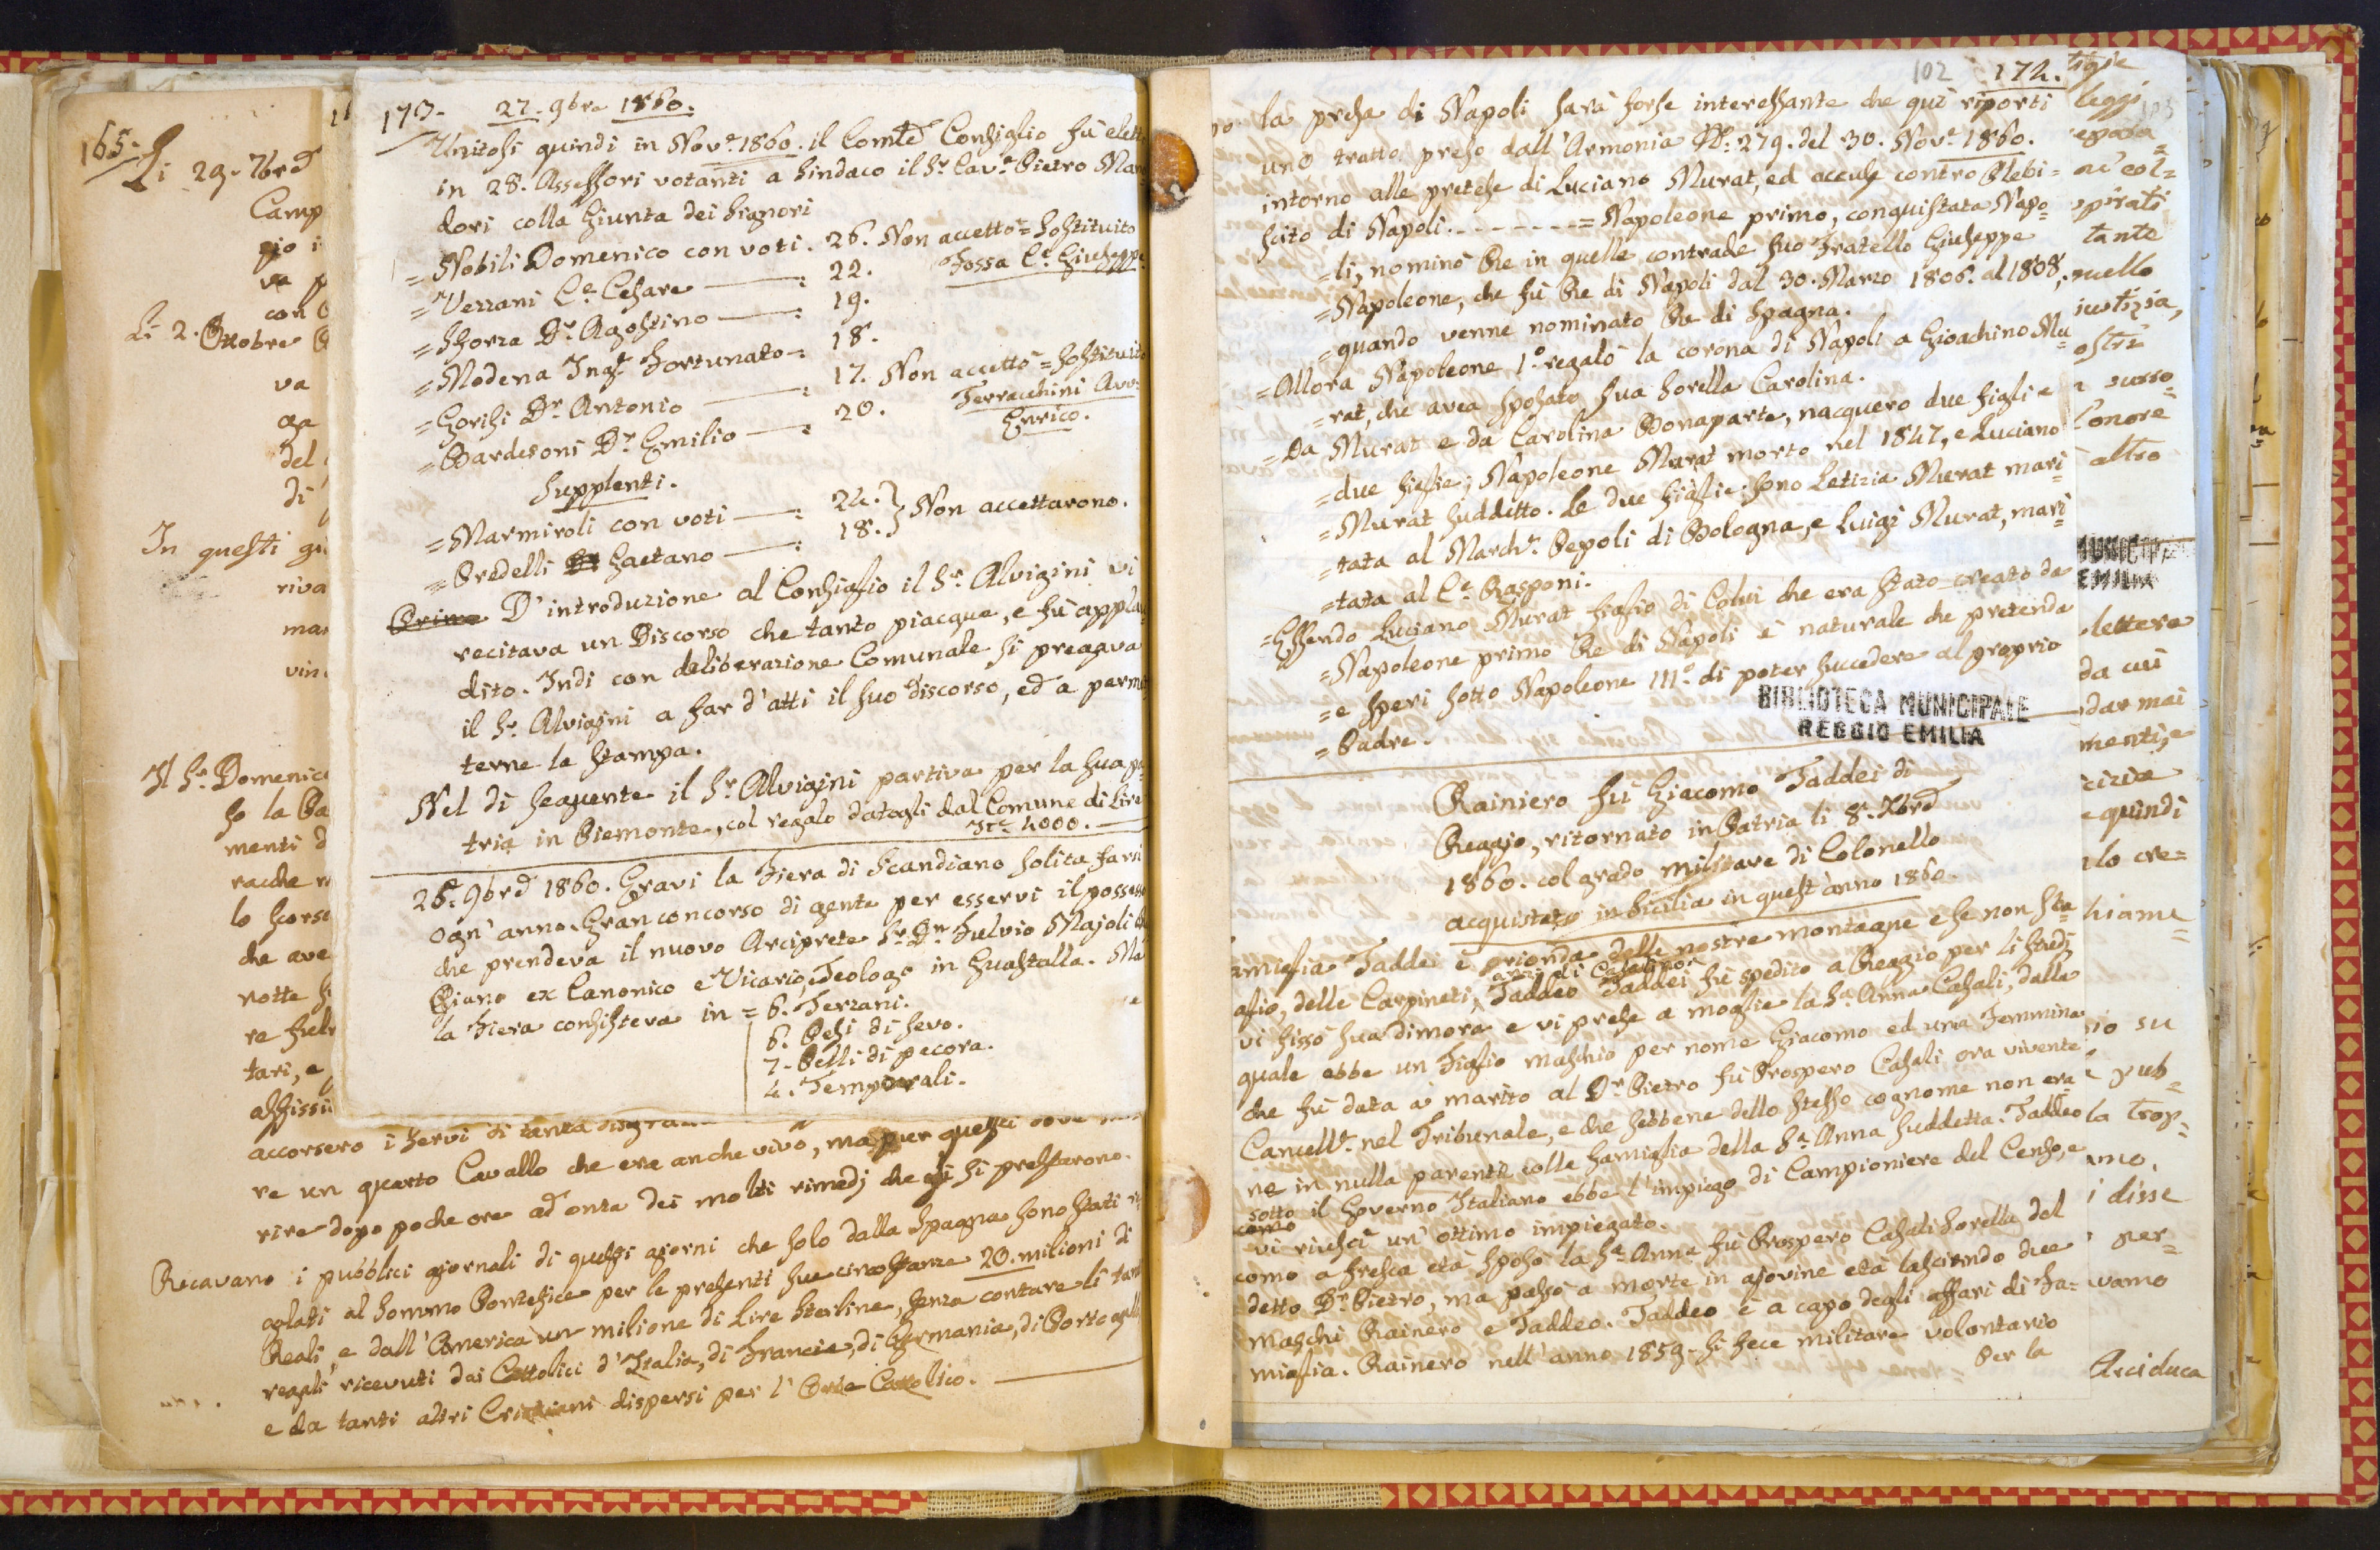 165-
Li 29. 7bre
Camp
gio i
va p
con
Li 2. Ottobre
va
ga
del
di
In questi gi
riva
man
vin
Il Sr. Domenico
so la
menti d
racche
lo scorso
che ave
notte
re
tari, e
173- 27. 9bre 1860.
Unitosi quindi in Nove. 1860. il Comle Consiglio fù elett
in 28. Assessori votanti a Sindaco il Sr. Cave. Pietro Man
dori colla Giunta dei Signori
= Nobili Domenico con voti. 26. Non accettò = Sostituito
Fossa Ce. Giuseppe
= Verrani Ce. Cesare —: 22.
= Sforza Dr. Agostino —: 19.
= Modena Ingr. Fortunato -: 18.
= Gorisi Dr. Antonio —: 17. Non accettò = Sostituito
Terrachini Avv:
= Bardesoni Dr. Emilio —: 20.
Enrico.
Supplenti.
= Marmiroli con voti —: 24. } Non accettarono.
= Predelli Gaetano —: 18.
Prima D'introduzione al Consiglio il Sr. Alvigini vi
recitava un Discorso che tanto piacque, e fù applau
dito. Indi con deliberazione Comunale si pregava
il Sr. Alvigini a far d'atti il suo discorso, ed a permet
terne la Stampa.
Nel dì seguente il Sr. Alvigini partiva per la sua pa
tria in Piemonte, col regalo datogli dal Comune di Lire
4000.
26. 9bre 1860. Eravi la Fiera di Scandiano solita farsi
ogn'anno. Gran concorso di gente per esservi il possesso
che prendeva il nuovo Arciprete Sr. Dn. Fulvio Majoli
Piano ex Canonico e Vicario, Teologo in Guastalla. Ma
la Fiera consisteva in = 6. Terzani.
6. Pesi di sevo.
7. Pelli di pecora.
4. Temporali.
accorsero i servi di tanta
re un quarto Cavallo che era anche vivo, ma pur questi dové
rire dopo poche ore ad onta dei molti rimedj che gli si prestarono.
Recavano i pubblici giornali di questi giorni che solo dalla Spagna sono stati
golati al Sommo Pontefice per le presenti sue circostanze 20. milioni di
Reali, e dall'America un milione di Lire Sterline, senza contare li tanti
regali ricevuti dai Cattolici d'Italia, di Francia, di Germania, di Portogallo
e da tanti altri Cristiani dispersi per l'Orbe Cattolico.
102 174.
la presa di Napoli sarà forse interessante che quì riporti
uno tratto preso dall'Armonia No. 279. del 30. Nove. 1860.
intorno alle pretese di Luciano Murat, ed accuse contro Plebi=
scito di Napoli. - - - - - - - = Napoleone primo, conquistata Napo=
= li, nominò Re in quelle contrade suo Fratello Giuseppe
= Napoleone, che fù Re di Napoli dal 30. Marzo 1806. al 1808,
= quando venne nominato Re di Spagna.
= Allora Napoleone 1o. regalò la corona di Napoli a Gioachino Mu=
= rat, che avea sposato sua Sorella Carolina.
= Da Murat e da Carolina Bonaparte, nacquero due figli e
= due figlie; Napoleone Murat morto nel 1847, e Luciano
= Murat sudditto. Le due figlie: sono Letizia Murat mari=
= tata al Marchr. Pepoli di Bologna, e Luigi Murat, mari=
= tata al Ce. Rasponi.
= Essendo Luciano Murat figlio di Colui che era Stato creato da
= Napoleone primo Re di Napoli è naturale che pretenda
= e speri sotto Napoleone III.o di poter succedere al proprio
= Padre.
BIBLIOTECA MUNICIPALE
REGGIO EMILIA
Rainiero fù Giacomo Taddei di
Reggio, ritornato in Patria li 8. Xbre
1860. col grado militare di Colonello
acquistato in Sicilia in quest'anno 1860.
amiglia Taddei è orionda dalle nostre montagne e se non sba
anzi di Casalino
glio, delle Carpineti, Taddeo Taddei fù spedito a Reggio per li studj
vi fissò sua dimora e vi prese a moglie la Sa. Anna Casali, dalla
quale ebbe un Figlio maschio per nome Giacomo ed una Femmina
che fù data a marito al Dr. Pietro fù Prospero Casali ora vivente
Cancellr. nel Tribunale, e che sebbene dello stesso cognome non era
ne in nulla parente colla famiglia della Sa. Anna suddetta. Taddeo
sotto il Governo Italiano ebbe l'impiego di Campioniere del Censo, e
como
vi riuscì un'ottimo impiegato.
como a fresca età sposò la Sa. Anna fù Prospero Casali Sorella del
detto Dr. Pietro, ma passò a morte in giovine età lasciando due
maschi Rainero e Taddeo. Taddeo è a capo degli affari di Fa=
miglia. Rainero nell'anno 1859. si fece militare volontario
Per la
leggi
né col=
spirati
tante
quello
iustizia,
ostri
l'onore
altro
MUNICIPA
EMILIA
lettere
da cui
dar mai
menti, e
cizia
e quindi
lo cre=
hiame
=
io su
pub=
la trop=
amo,
i disse
per=
vamo
Arciduca